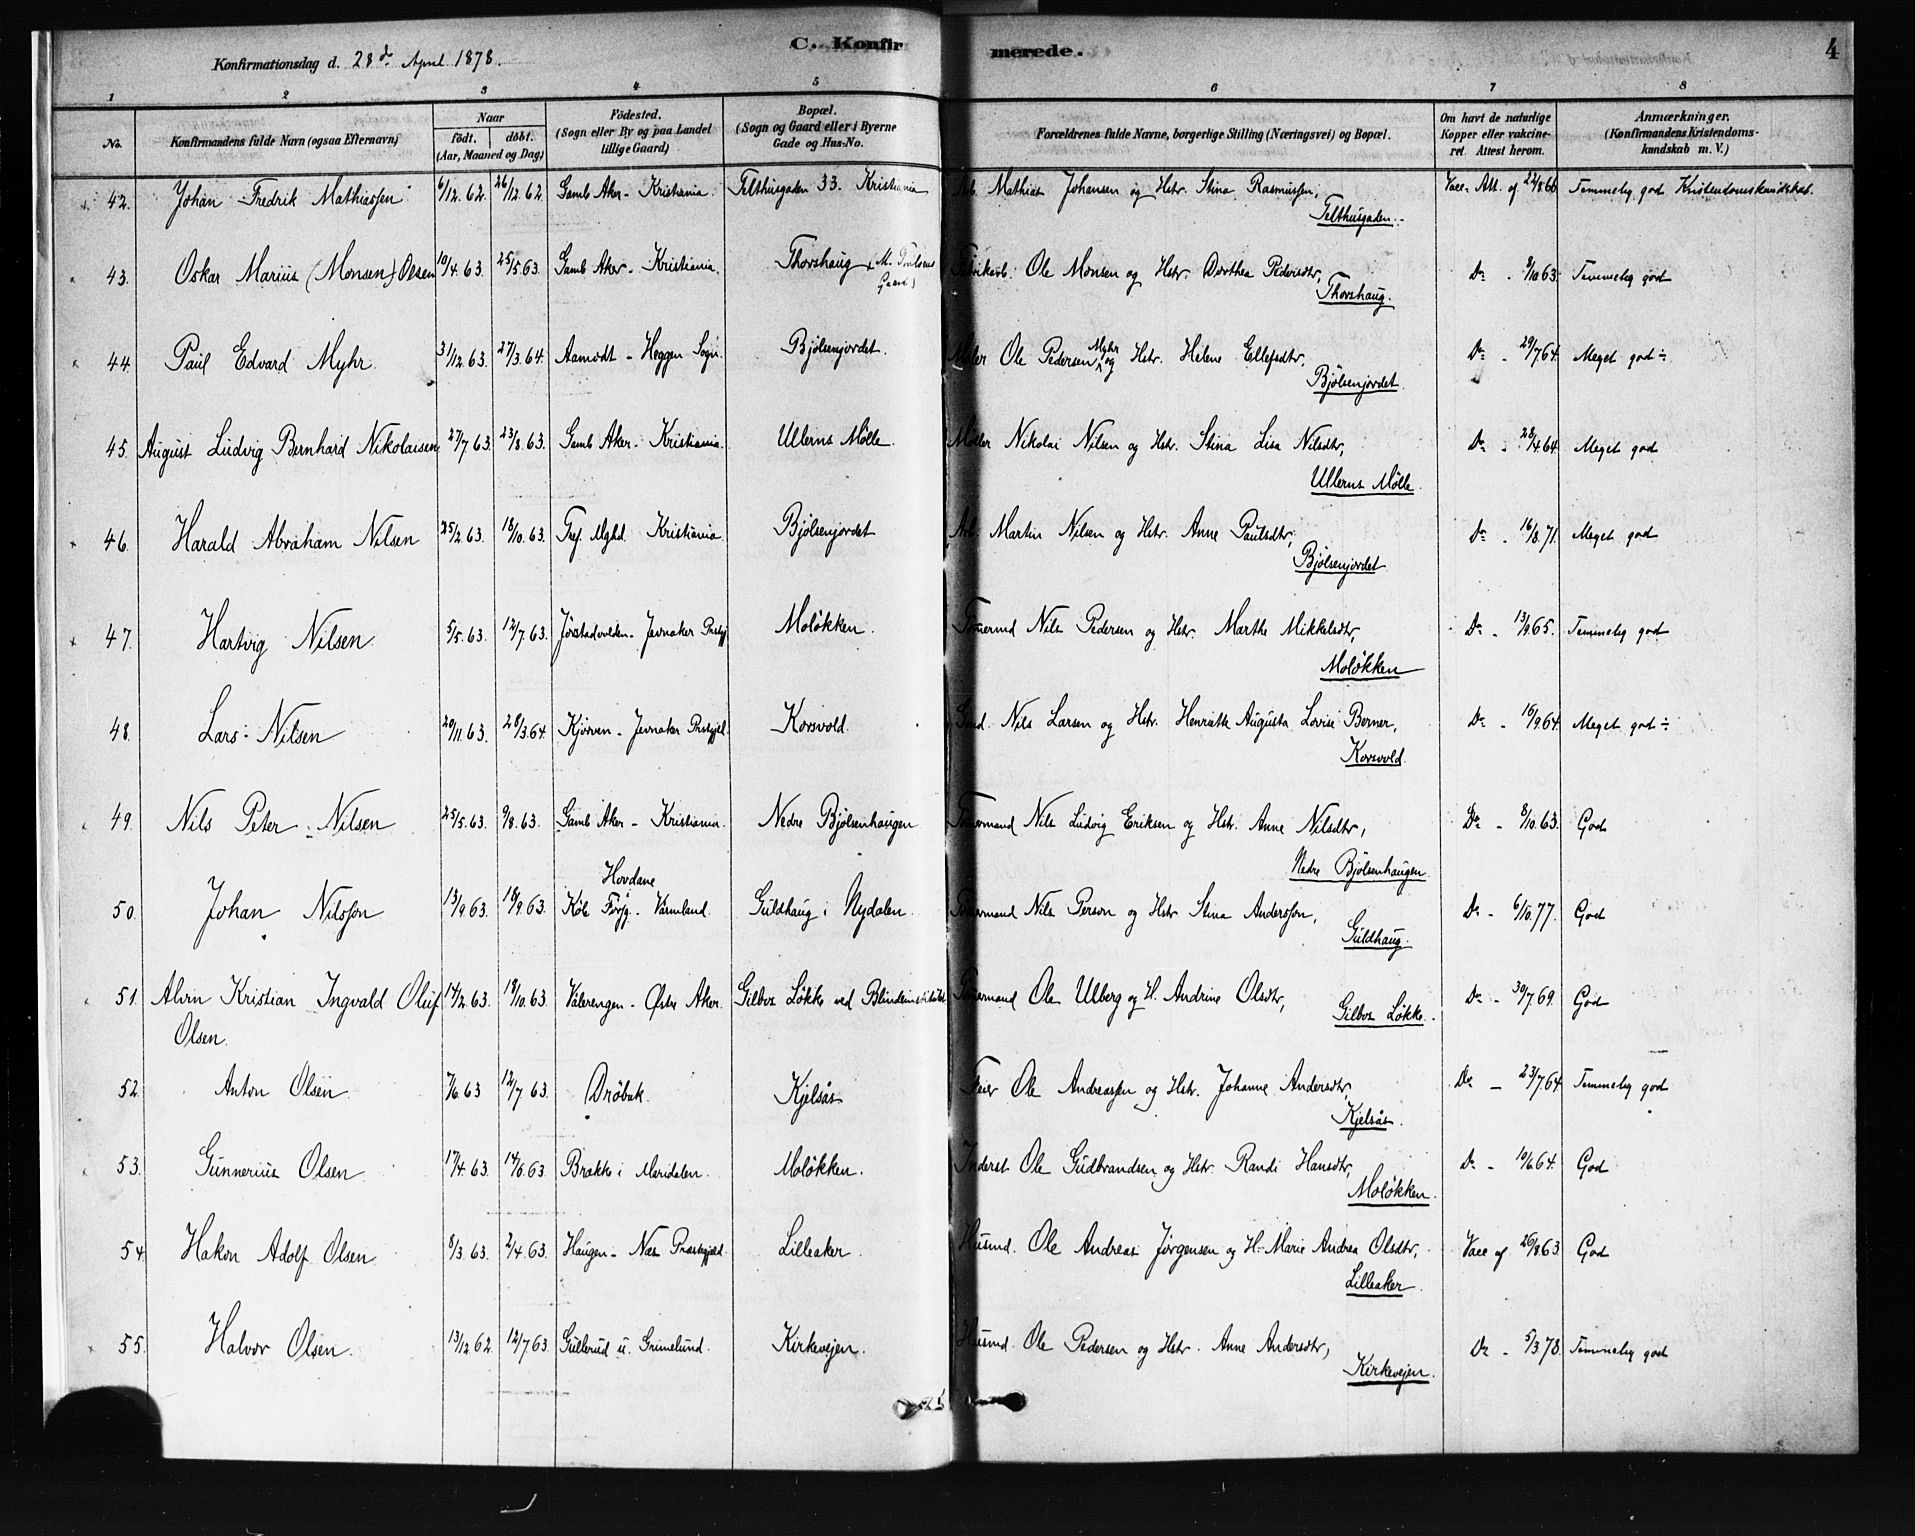 C. Konfirmerede. 4
Konfirmationsdag d. 28d April 1878.
1 2 3 4 5 6 7 8
No. Konfirmandens fulde Navn (ogsaa Efternavn) Naar Födt. döbt. (Aar, Maaned og Dag) Födested. (Sogn eller By og paa Landet tillige Gaard) Bopæl. (Sogn og Gaard eller i Byerne Gade og Hus-No. Forældrenes fulde Navne, borgerlige Stilling (Næringsvei) og Bopæl. Om havt de naturlige Kopper eller vakcineret. Attest herom. Anmærkninger. (Konfirmandens Kristendomskundskab m. V.)
42. Johan Fredrik Mathiassen 6/12 62. 26/12 62 Gaml Aker - Kristiania Telthusgaden 33. Kristiania Arb. Mathias Johansen og Hstr. Stina Rasmussen, Vacc. Att. af 22/8 66 Temmelig god Kristendomskundskab.
Telthusgaden.
43. Oskar Marius (Monsen) Olsen 10/4. 63. 25/5 63. Gaml Aker - Kristiania. Thorshaug Fabrikarb. Ole Monsen og Hstr. Dorthea Pedersdtr, Do - 8/10 63. Temmelig god
Thorshaug.
44 Paul Edvard Myhr 31/12. 63. 27/3. 64. Aamodt - Heggen Sogn. Bjölsenjordet. Maler Ole Pedersen Myhr og Hstr. Helene Ellefsdtr, Do - 29/7 64. Meget god ÷
Bjölsenjordet.
45. August Ludvig Bernhard Nikolaisen 27/7 63. 23/8 63. Gaml Aker - Kristiania. Ullerns Mölle. Möller Nikolai Nilsen og Hstr. Stina Lisa Nilsdtr, Do - 28/4 64. Meget god
Ullerns Mölle.
46. Harald Abraham Nilsen 25/2 63. 18/10. 63. Tref. Mghd. Kristiania Bjölsenjordet Arb. Martin Nilsen og Hstr. Anne Paulsdtr, Do - 16/8 71. Meget god
Bjölsenjordet
47. Hartvig Nilsen 5/5. 63. 12/7. 63. Jevnaker Prstgj Molökken. Tömmermd Nils Pedersen og Hstr. Marthe Mikkelsdtr, Do - 13/9 65. Temmelig god
Molökken
48. Lars Nilsen 20/11 63. 28/3 64 Kjörven - Jevnaker Prstgjel. Korsvold. Nils Larsen og Hstr. Henriette Augusta Lovise Berner, Do - 16/9 64. Meget god ÷
Korsvold
49. Nils Peter Nilsen 25/5. 63. 9/8. 63. Gaml Aker - Kristiania. Nedre Bjölsenhaugen Tömmermand Nils Ludvig Eriksen og Hstr. Anne Nilsdtr, Do - 8/10 63. God
Nedre Bjölsenhaugen
50. Johan Nilsson 13/9 63. 18/9. 63. Hovdane Köla Forsg. - Värmland. Guldhaug i Nydalen. Tömmermand Nils Person og Hstr Stina Andersson, Do - 6/10. 77. God
Guldhaug.
51. Alvin Kristian Ingvald Oluf 14/2. 63. 18/10. 63. Vålerengen - Østre Aker. Gilbos Løkke ved Blindeinstitutet Tömmermand Ole Ulberg og H. Andrine Olsdtr, Do - 30/7 69. God
Olsen. Gilbos Løkke.
52. Anton Olsen 7/6. 63 12/7. 63. Dröbak. Kjelsås Feier Ole Andreassen og Hstr. Johanne Andersdtr, Do - 23/7 64 Temmelig god
Kjelsås.
53. Gunnerius Olsen 17/4. 63. 14/6. 63 Brække i Maridalen. Molökken. Inderst Ole Gudbrandsen og Hstr. Randi Hansdtr, Do - 10/6 64. God
Molökken.
54. Hakon Adolf Olsen 8/3. 63. 2/4. 63. Haugen - Næs Præstegjæld. Lilleaker. Husmd. Ole Andreas Jörgensen og H. Marie Andrea Olsdtr, Vacc af 26/8 63. God
Lilleaker
55. Halvor Olsen. 13/12 62. 12/7 63. Gullerud u. Grimelund. Kirkevejen. Husmd. Ole Pedersen og Hstr. Anne Andersdtr, Do - 5/3 78. Temmelig god
Kirkevejen.